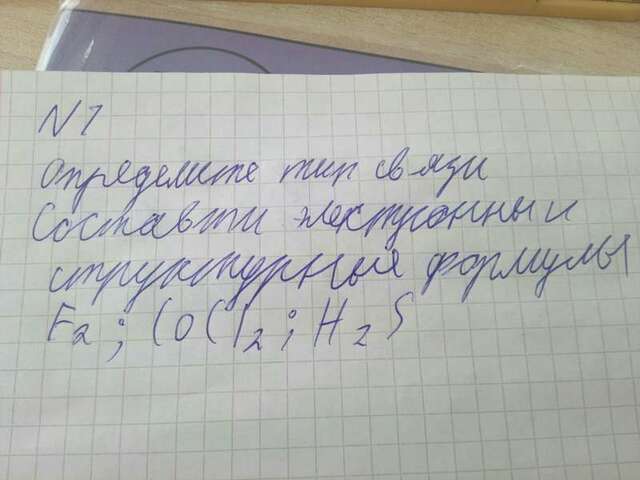 N1
Определите тип связи
Составти электронны и
структурные формулы
F2; CoCl2; H2S